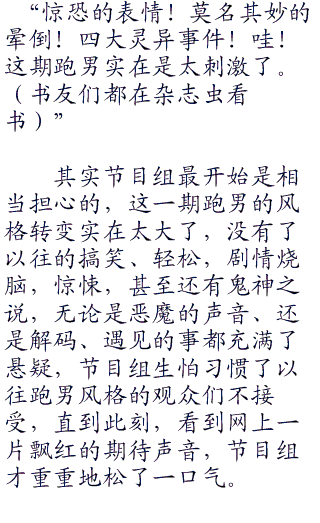 “惊恐的表情！莫名其妙的
晕倒！四大灵异事件！哇！
这期跑男实在是太刺激了。
（书友们都在杂志虫看
书）”
其实节目组最开始是相
当担心的，这一期跑男的风
格转变实在太大了，没有了
以往的搞笑、轻松，剧情烧
脑，惊悚，甚至还有鬼神之
说，无论是恶魔的声音、还
是解码、遇见的事都充满了
悬疑，节目组生怕习惯了以
往跑男风格的观众们不接
受，直到此刻，看到网上一
片飘红的期待声音，节目组
才重重地松了一口气。